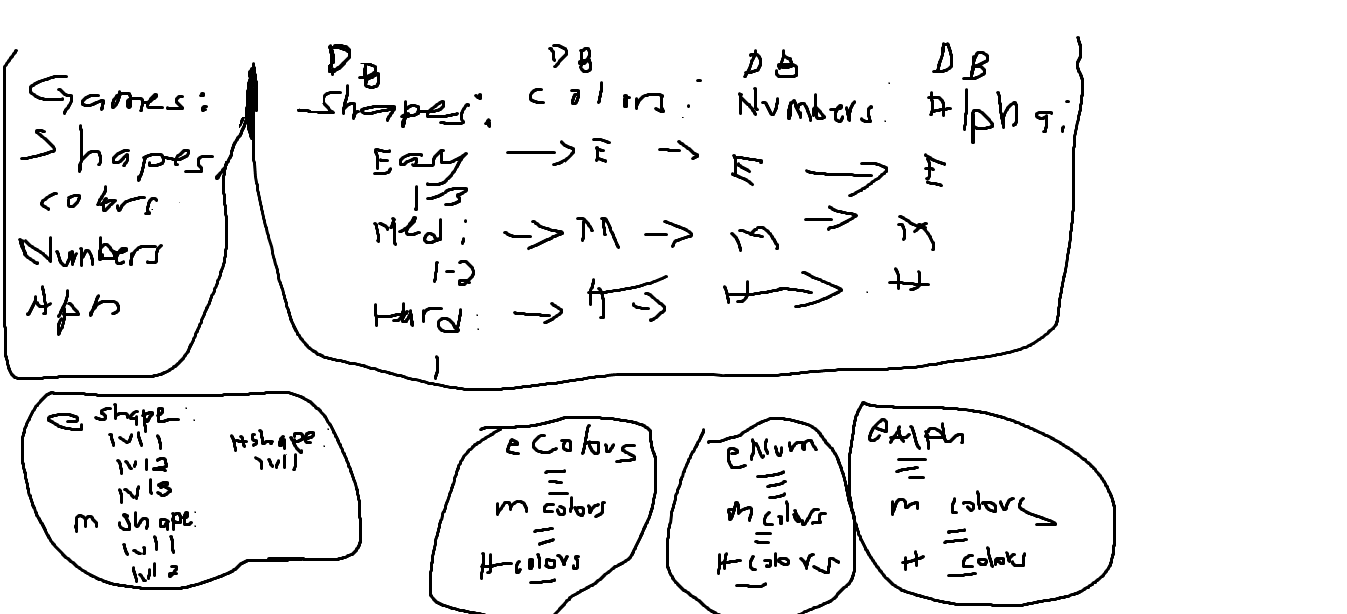 Games:
Shapes
colors
Numbers
Alph
DB DB DB DB
Shapes: colors: Numbers: Alpha:
Easy → E → E → E
1-3
Med: → M → M → M
1-2
Hard: → H → H → H
1
e shape:
lvl 1
lvl 2
lvl 3
m shape:
lvl 1
lvl 2
H shape:
lvl 1
e Colors
m colors
H-colors
e Num
m colors
H-colors
e Alph
m colors
H colors